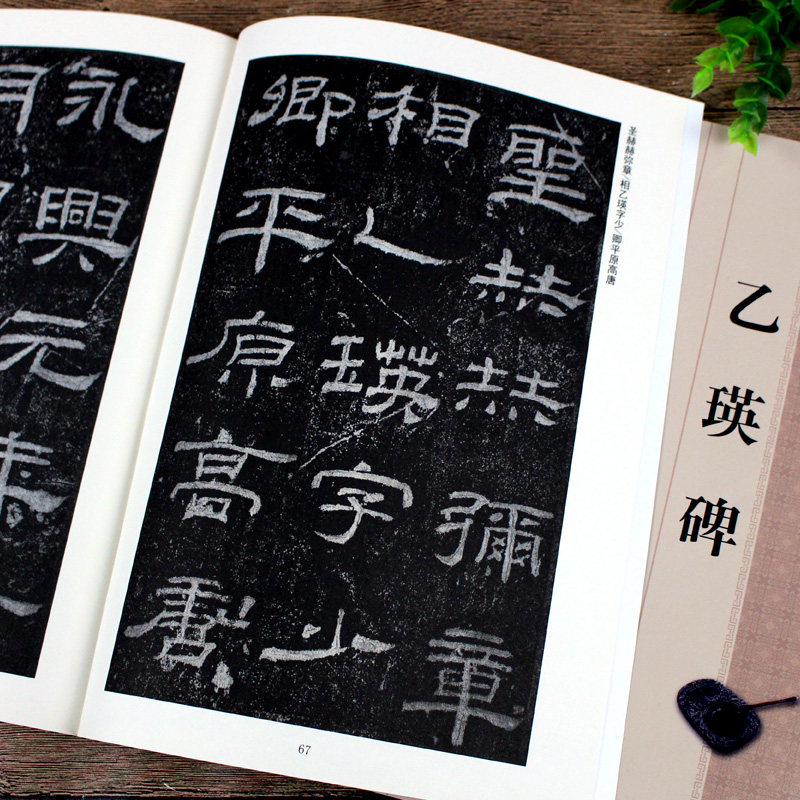 聖赫赫彌章
相乙瑛字少
卿平原高唐
圣赫赫弥章/相乙瑛字少/卿平原高唐
67
永興元
乙瑛碑